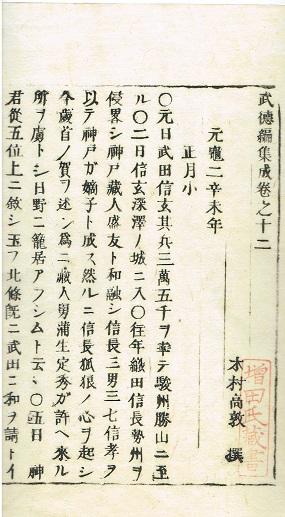 武德編集成卷之十二
木村高敦 撰
增田氏藏書
元龜二辛未年
正月小
〇元日武田信玄其兵三萬五千ヲ率テ駿州勝山ニ至
ル〇二日信玄深澤ノ城ニ入〇往年織田信長勢州ヲ
侵畧シ神戸藏人盛友ト和融シ信長三男三七信孝ヲ
以テ神戸ガ嫡子ト成ス然ルニ信長狐狼ノ心ヲ起シ
今歳首ノ賀ヲ述ン爲ニ藏人男蒲生定秀ガ許ヘ來ル
所ヲ虜トシ日野ニ籠居アラシムト云〻〇五日 神
君從五位上ニ敘シ玉フ北條既ニ武田ニ和ヲ請トイ